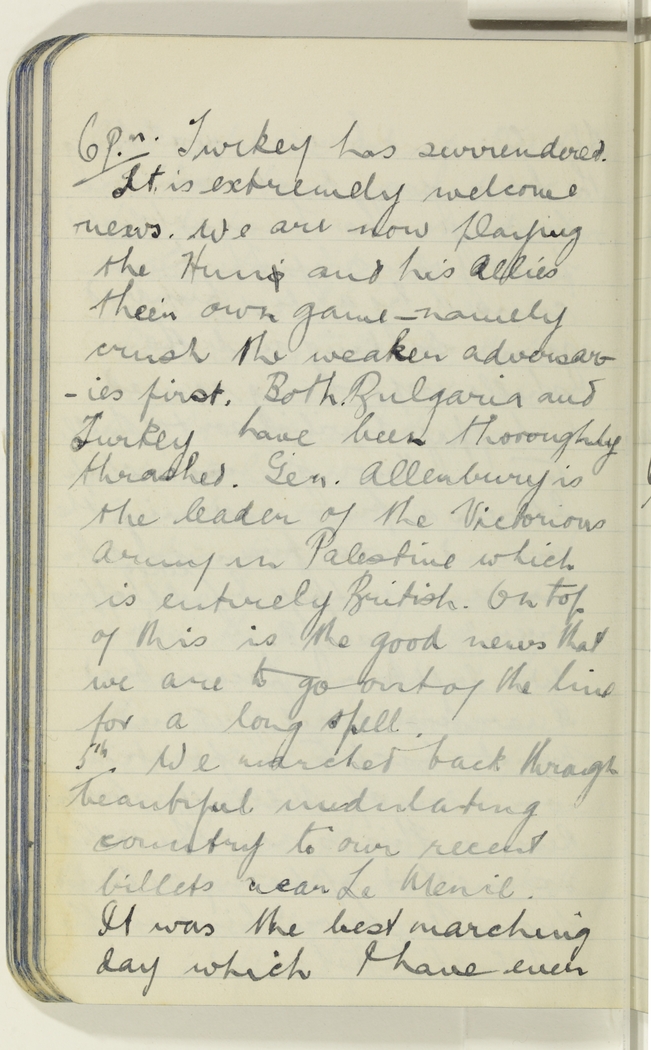 6 p.m. Turkey has surrendered.
It is extremely welcome
news. We are now playing
the Hun and his Allies
their own game – namely
crush the weaker adversar-
-ies first. Both Bulgaria and
Turkey have been thoroughly
thrashed. Gen. Allenbury is
the leader of the Victorious
army in Palestine which
is entirely British. On top
of this is the good news that
we are to go out of the line
for a long spell.
5th. We marched back through
beautiful undulating
country to our recent
billets near Le Menil.
It was the best marching
day which I have ever